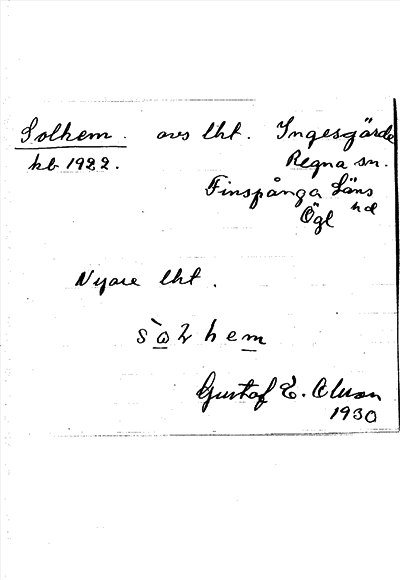 Solhem. avs lht. Ingesgärde
kb 1922. Regna sn.
Finspånga Läns
hd
Ögl
Nyare lht.
sὼlhem
Gustaf E. Olson
1930